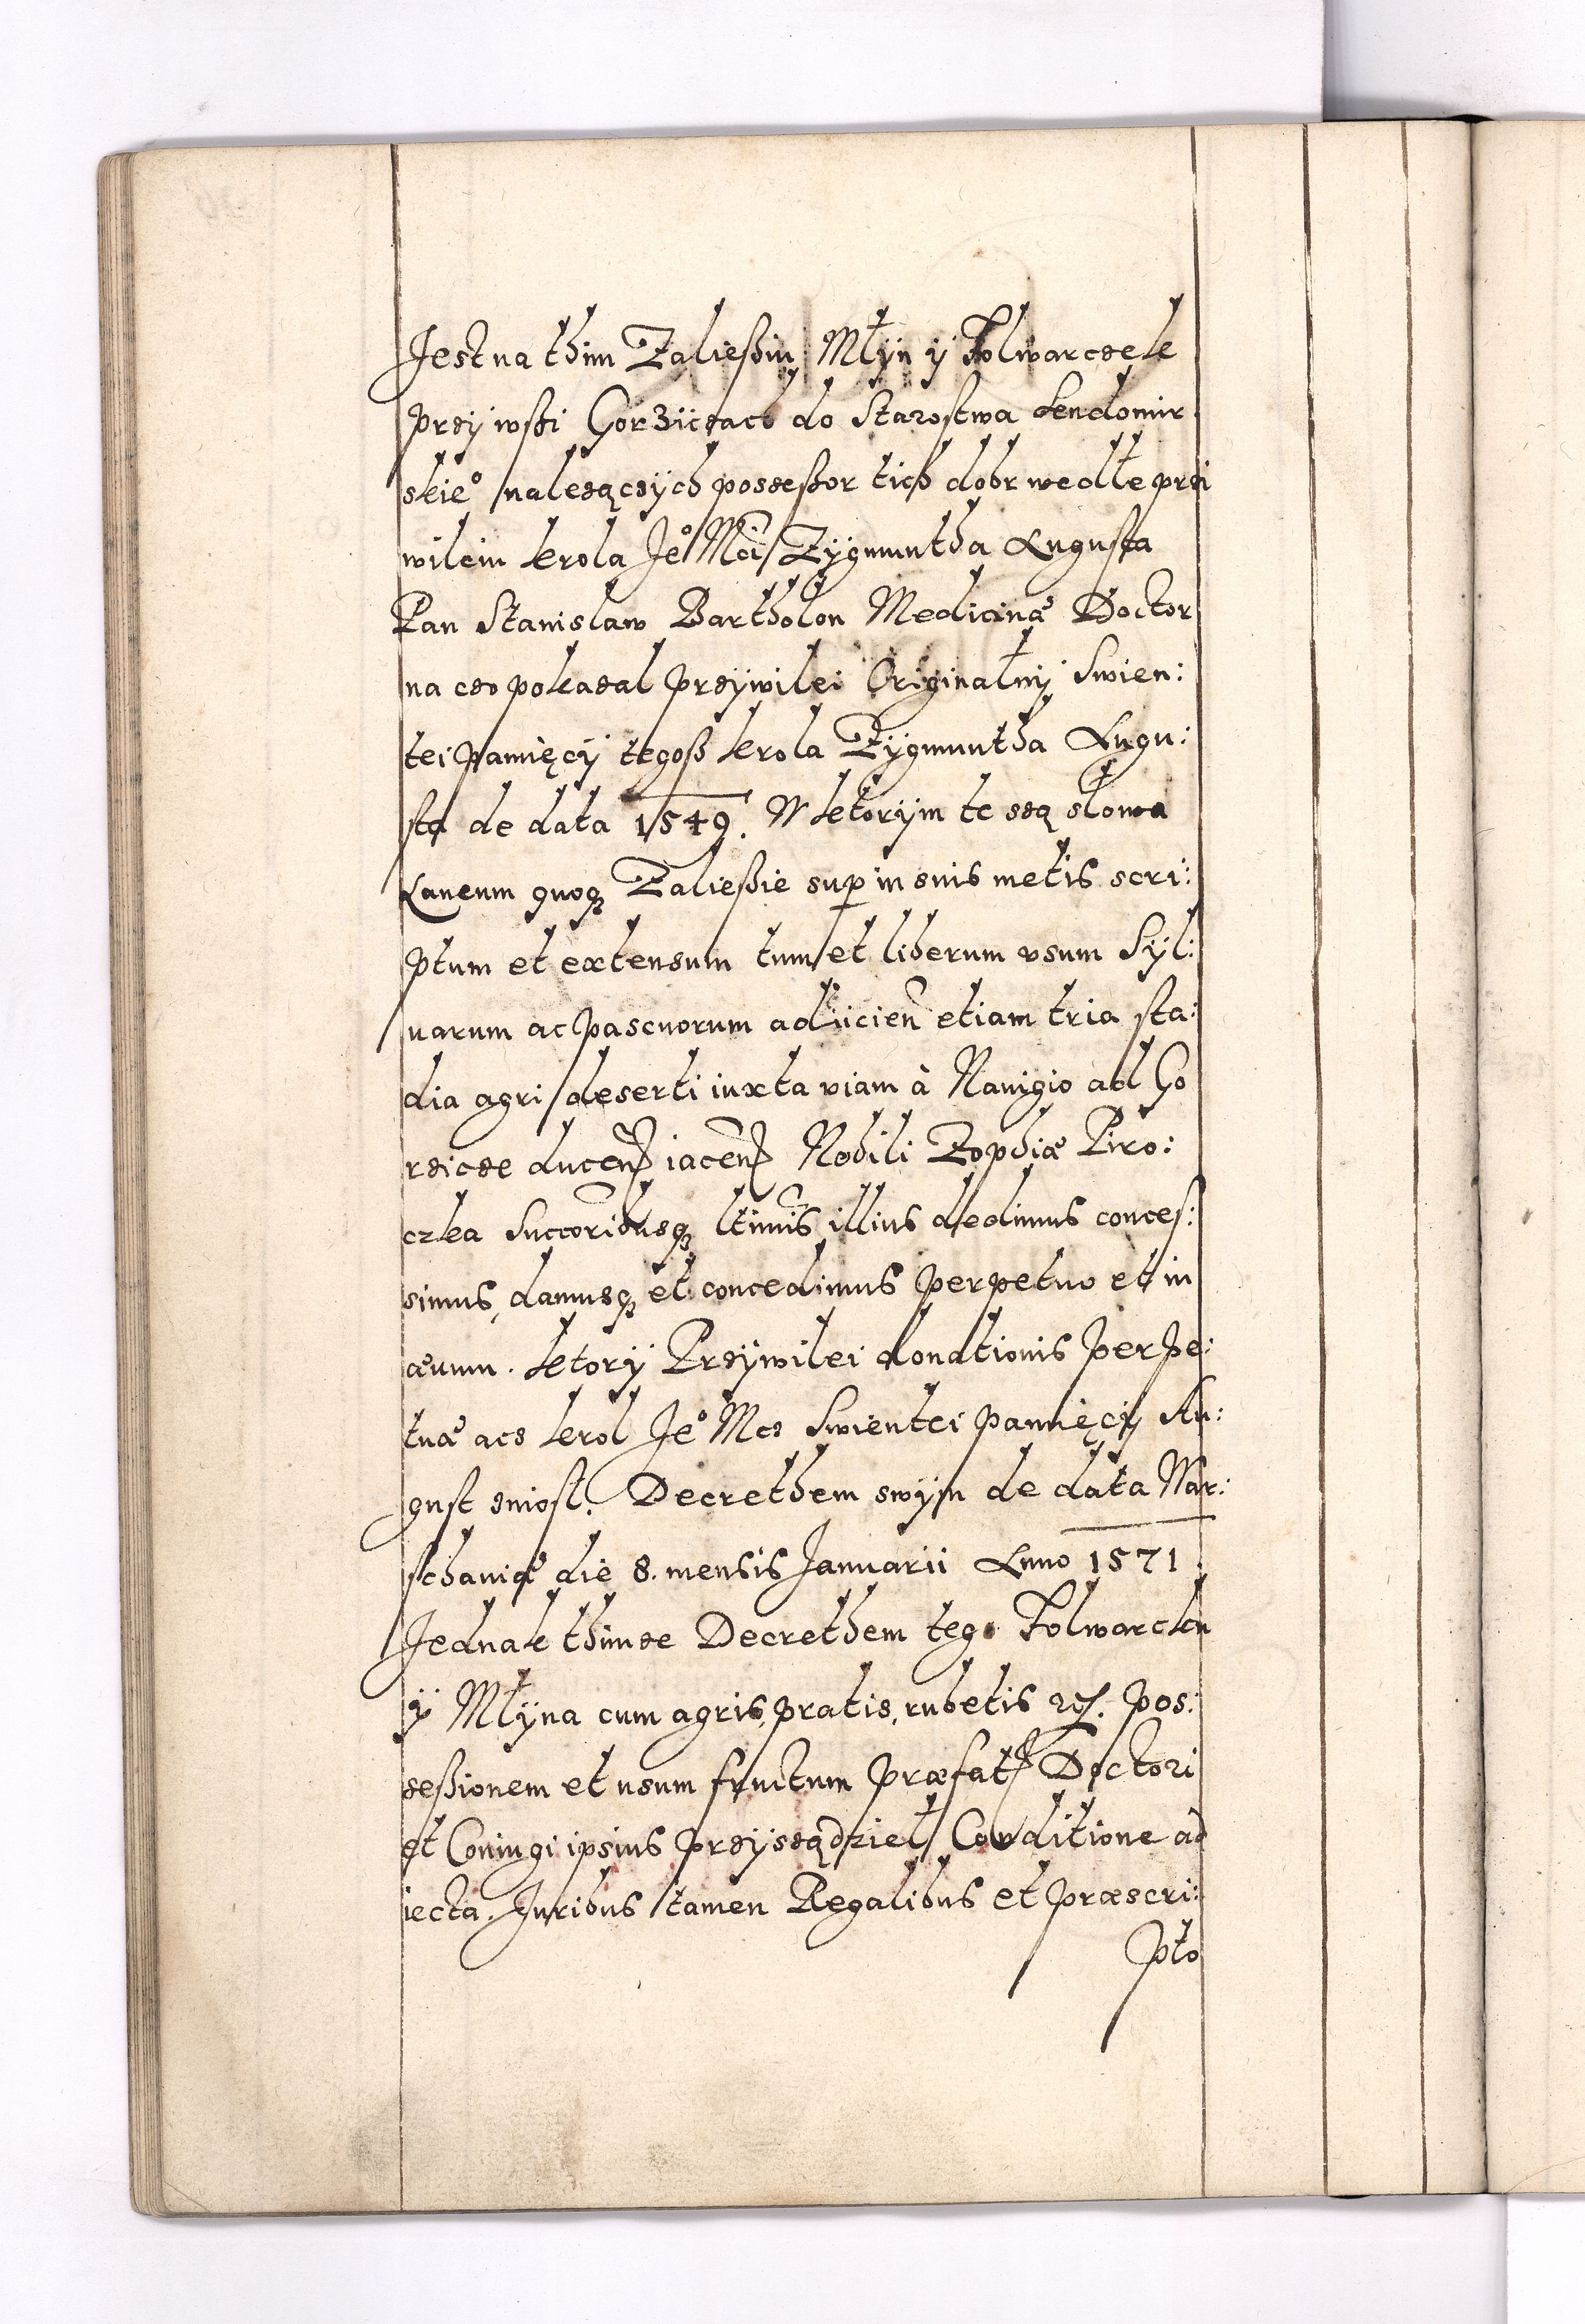 Jest na thim Zaließiu Młÿn ÿ Folwarczek
przÿ wśßi Gorzÿczach do Starostwa Sendomir
skieº należączÿch possessor tich dobr wedle przi
wileiu krola Jeº Mći Zÿgmuntha Augusta
Pan Stanislaw Bartholon Medicinæ Doctor
na czo pokazal przÿwilei Originalnÿ Swien:
tei pamięcÿ tegoß krola Zÿgmuntha Augu:
sta de data 1549. W ktorÿm te są słowa
Laneum quoqȝ Zaließie super in suis metis scri:
ptum et extensum tum et liberum vsum Sÿl:
uarum ac pascuorum adiicien̄ etiam tria sta:
dia agri deserti iuxta viam à Nauigio ad Go
rzicze ducen̄ iacen̄ Nobili Zophiæ Piro:
czka Succoribusqȝ ltimis illius dedimus conces:
simus, damusqȝ et concedimus perpetuo et in
æuum. ktorÿ Przÿwilei donationis perpe:
tuæ acz krol Jeº Mcz Swientei pamięcÿ Au:
gust zniosł. Decrethem swÿm de data War:
schauiæ die 8. mensis Januarii Anno 1571.
Jednak thimze Decrethem tego Folwarcku
ÿ Młÿna cum agris, pratis, rubetis etc. pos:
seßionem et usum fructum præfat̄ Doctori
et Coniugi ipsius przÿsądził Conditione ad
iecta. Juribus tamen Regalibus et præscri:
pto